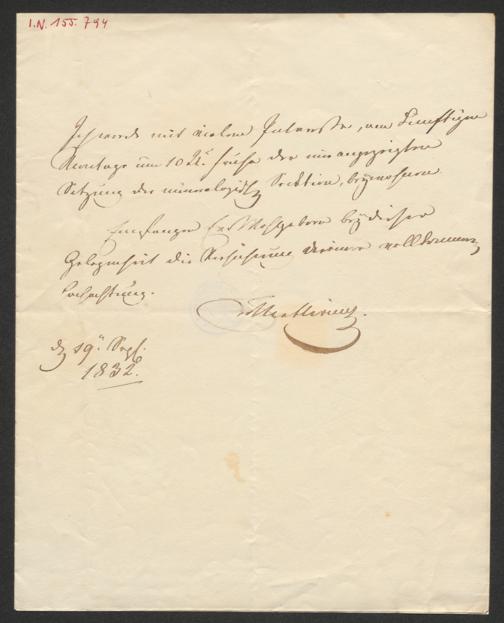 I.N. 155.794
Ich werde mit vielem Interesse, am künftigen
Montage um 10 Uhr früh der mir angezeigten
Sitzung der mineralogisch Section, beywohnen.
Empfangen Euer Wohlgeborn bey dieser
Gelegenheit die Versicherung meiner vollkommen
Hochachtung.
d 19. Sept.
1832.